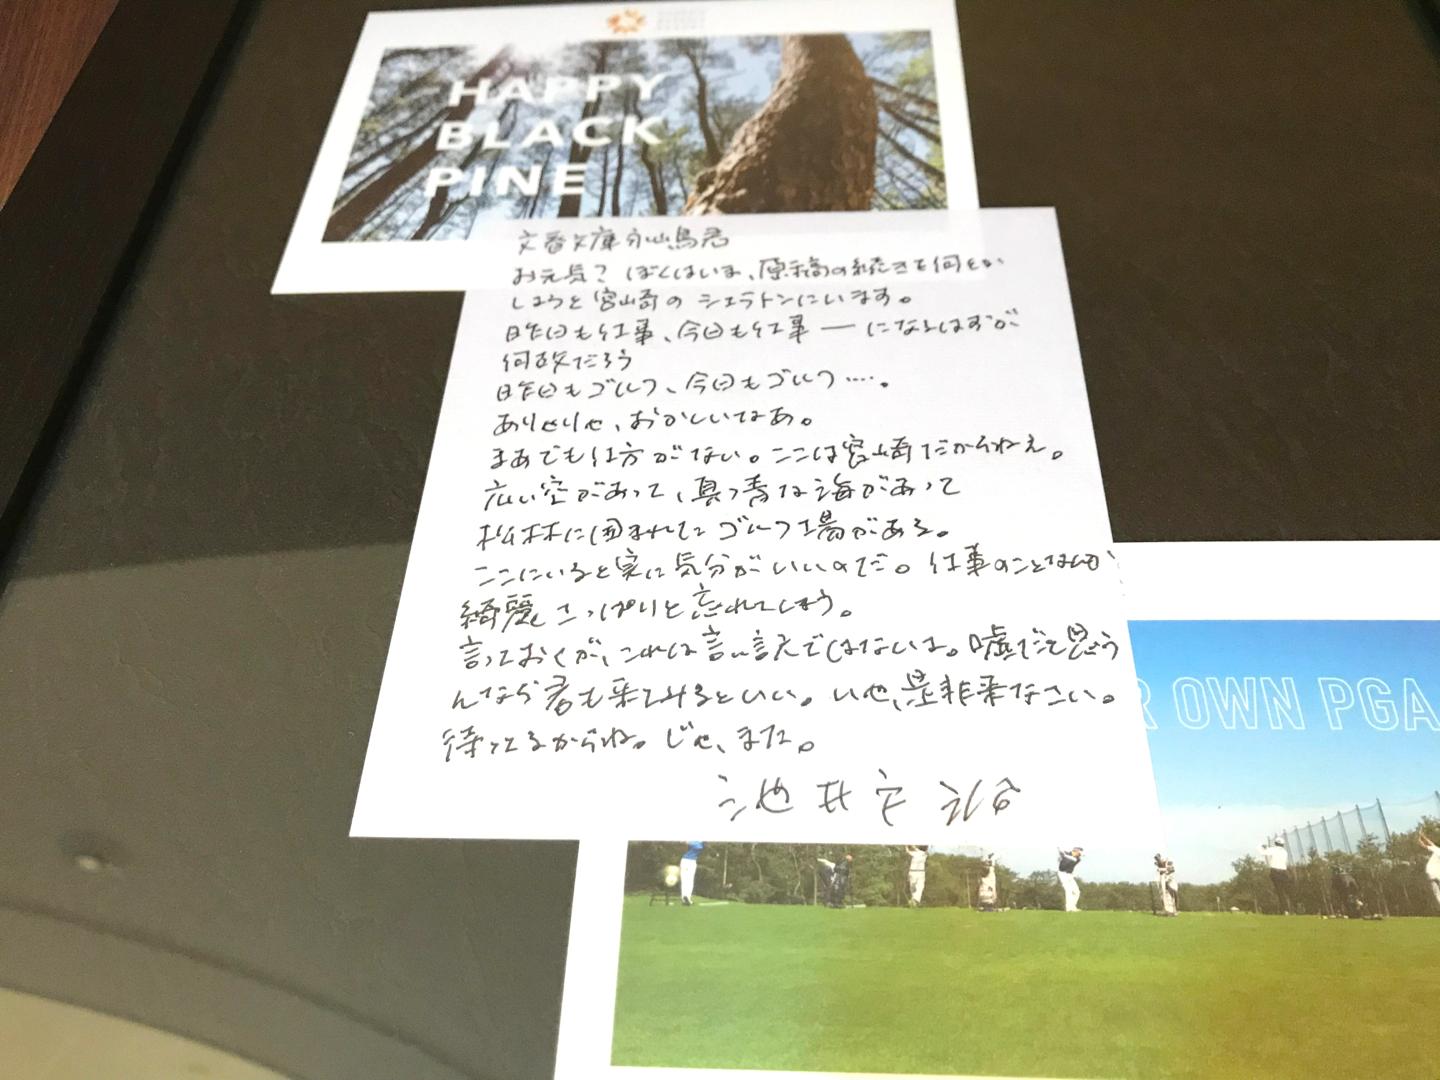 HAPPY
BLACK
PINE
文春文庫
お元気? ぼくはいま、原稿の続きを何とか
しようと宮崎のシェラトンにいます。
昨日も仕事、今日も仕事―になるはずが
何故だろう
昨日もゴルフ、今日もゴルフ‥‥。
ありゃりゃ、おかしいなあ。
まあでも仕方がない。ここは宮崎だからねえ。
広い空があって、真っ青な海があって
松林に囲まれたゴルフ場がある。
ここにいると実に気分がいいのだ。仕事のことなんか
綺麗さっぱりと忘れてしまう。
言っておくが、これは言い訳ではないよ。嘘だと思う
んなら君も来てみるといい。いや、是非来なさい。
待ってるからね。じゃ、また。
池井戸 潤
R OWN PGA